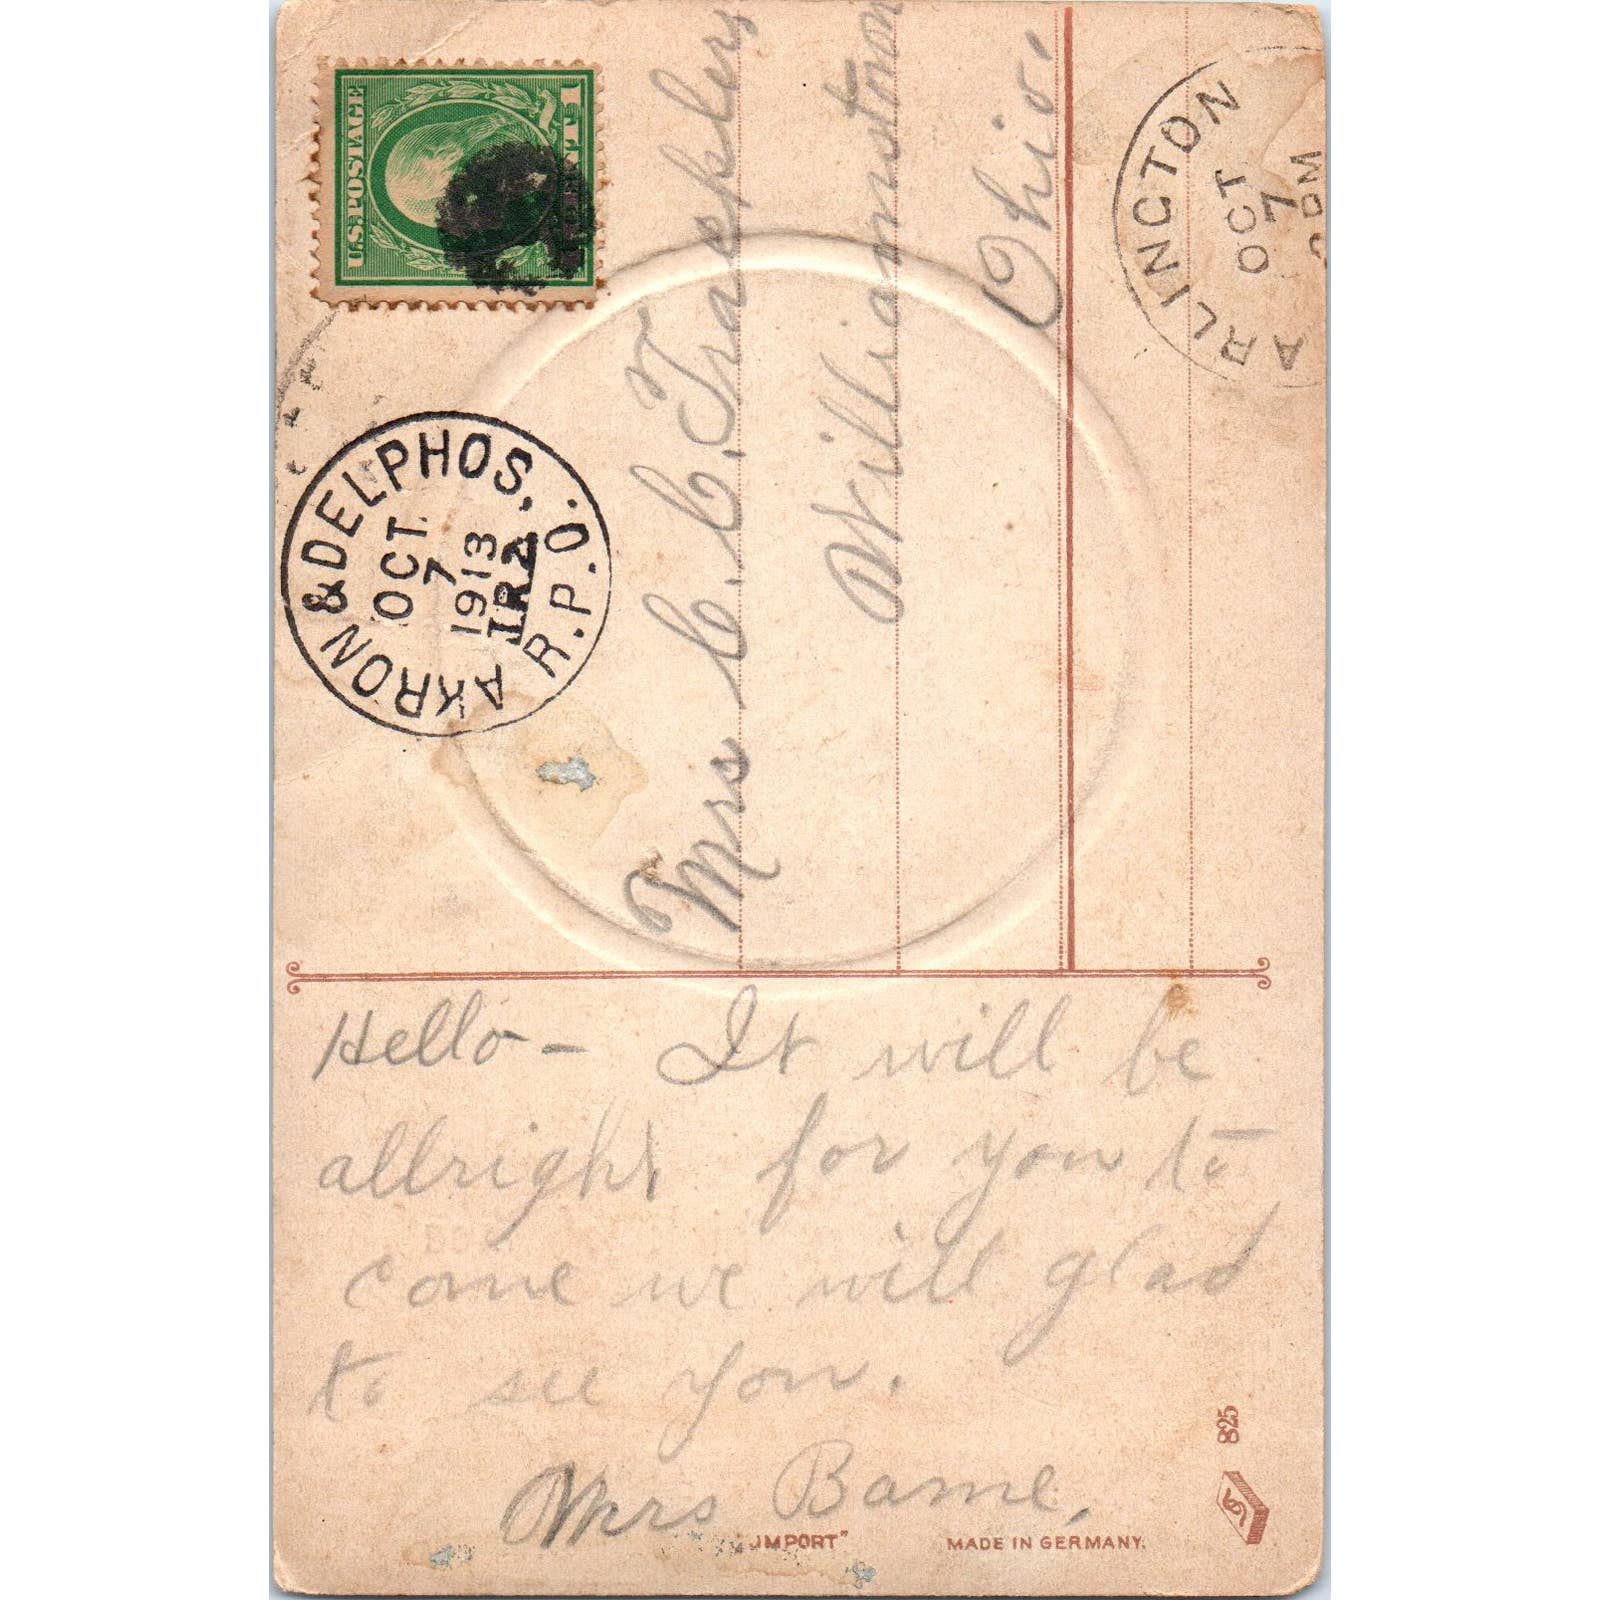 U.S. POSTAGE
1 CENT 1
AKRON & DELPHOS, O.
OCT
7
1913
TR2
R.P.O.
ARLINGTON
OCT
7
PM
Mrs C. C. Traxler,
Williamston
Ohio.
Hello - It will be
allright for you to
come we will glad
to see you.
Mrs Bame,
"IMPORT"
MADE IN GERMANY.
825